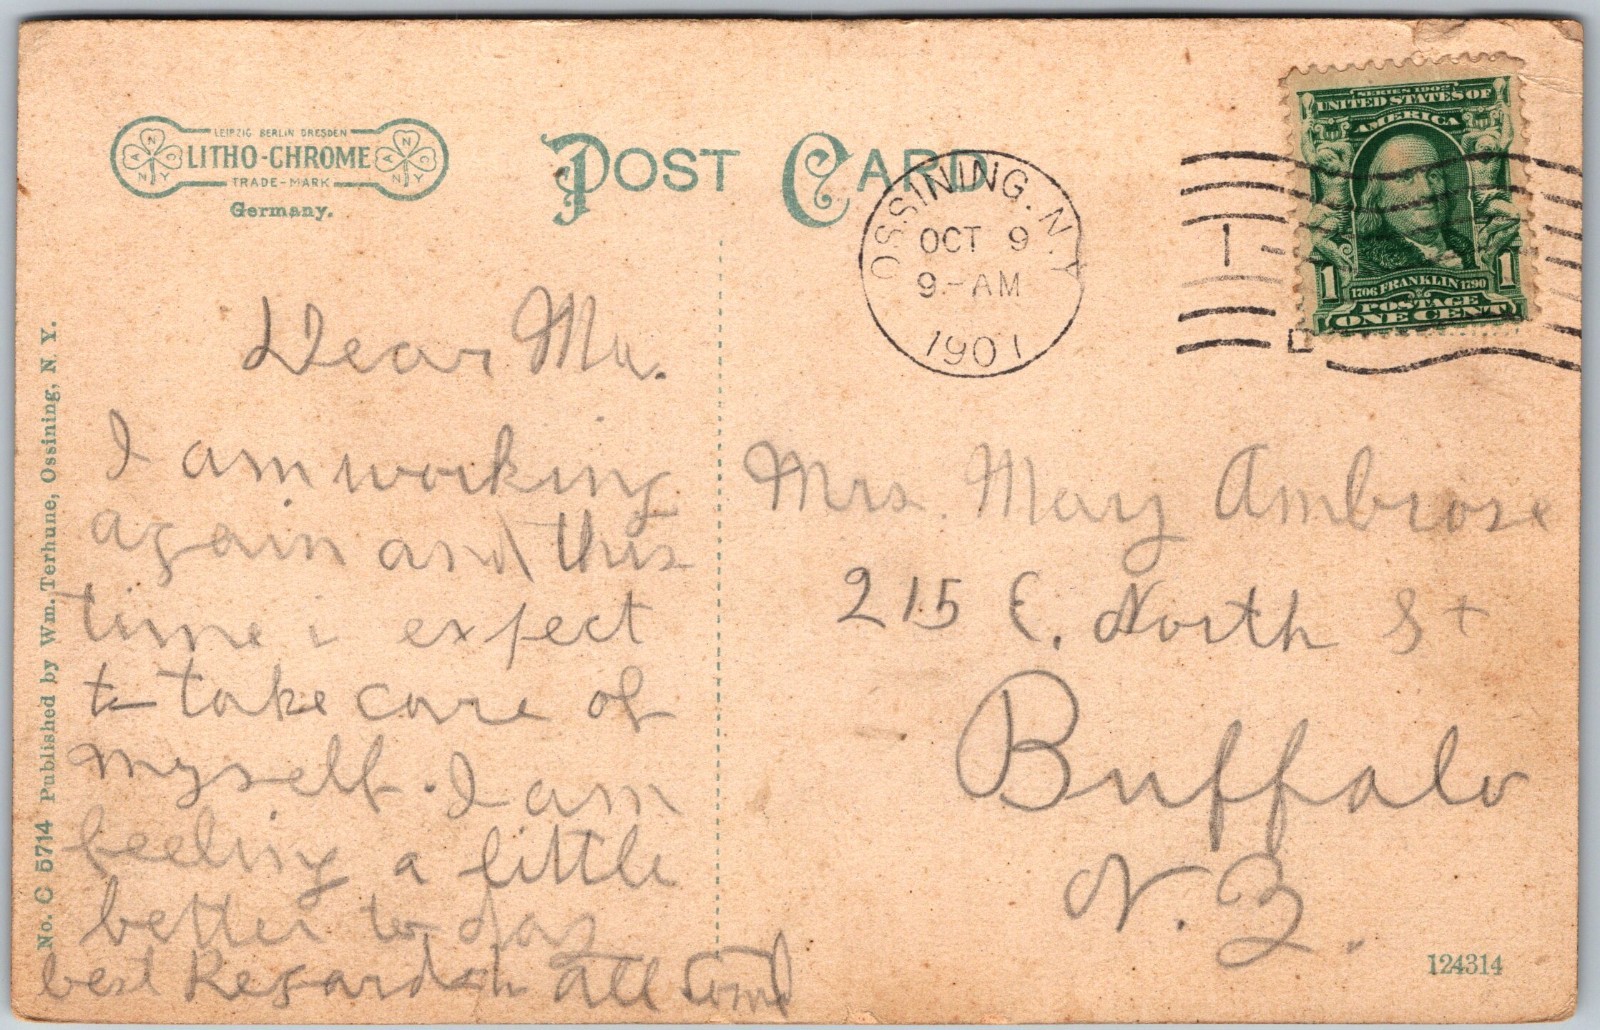 LEIPZIG BERLIN DRESDEN
LITHO-CHROME
TRADE-MARK
Germany.
POST CARD
OSSINING. N.Y.
OCT 9
9-AM
1901
1
SERIES 1902
UNITED STATES OF
AMERICA
1 1
1706 FRANKLIN 1790
POSTAGE
ONE CENT
No. C 5714 Published by Wm. Terhune, Ossining, N. Y.
Dear Ma.
I am working
again and this
time i expect
to take care of
myself. I am
feeling a little
better to day
best Regards to all
Mrs. Mary Ambrose
215 E. North St
Buffalo
N.Y.
124314